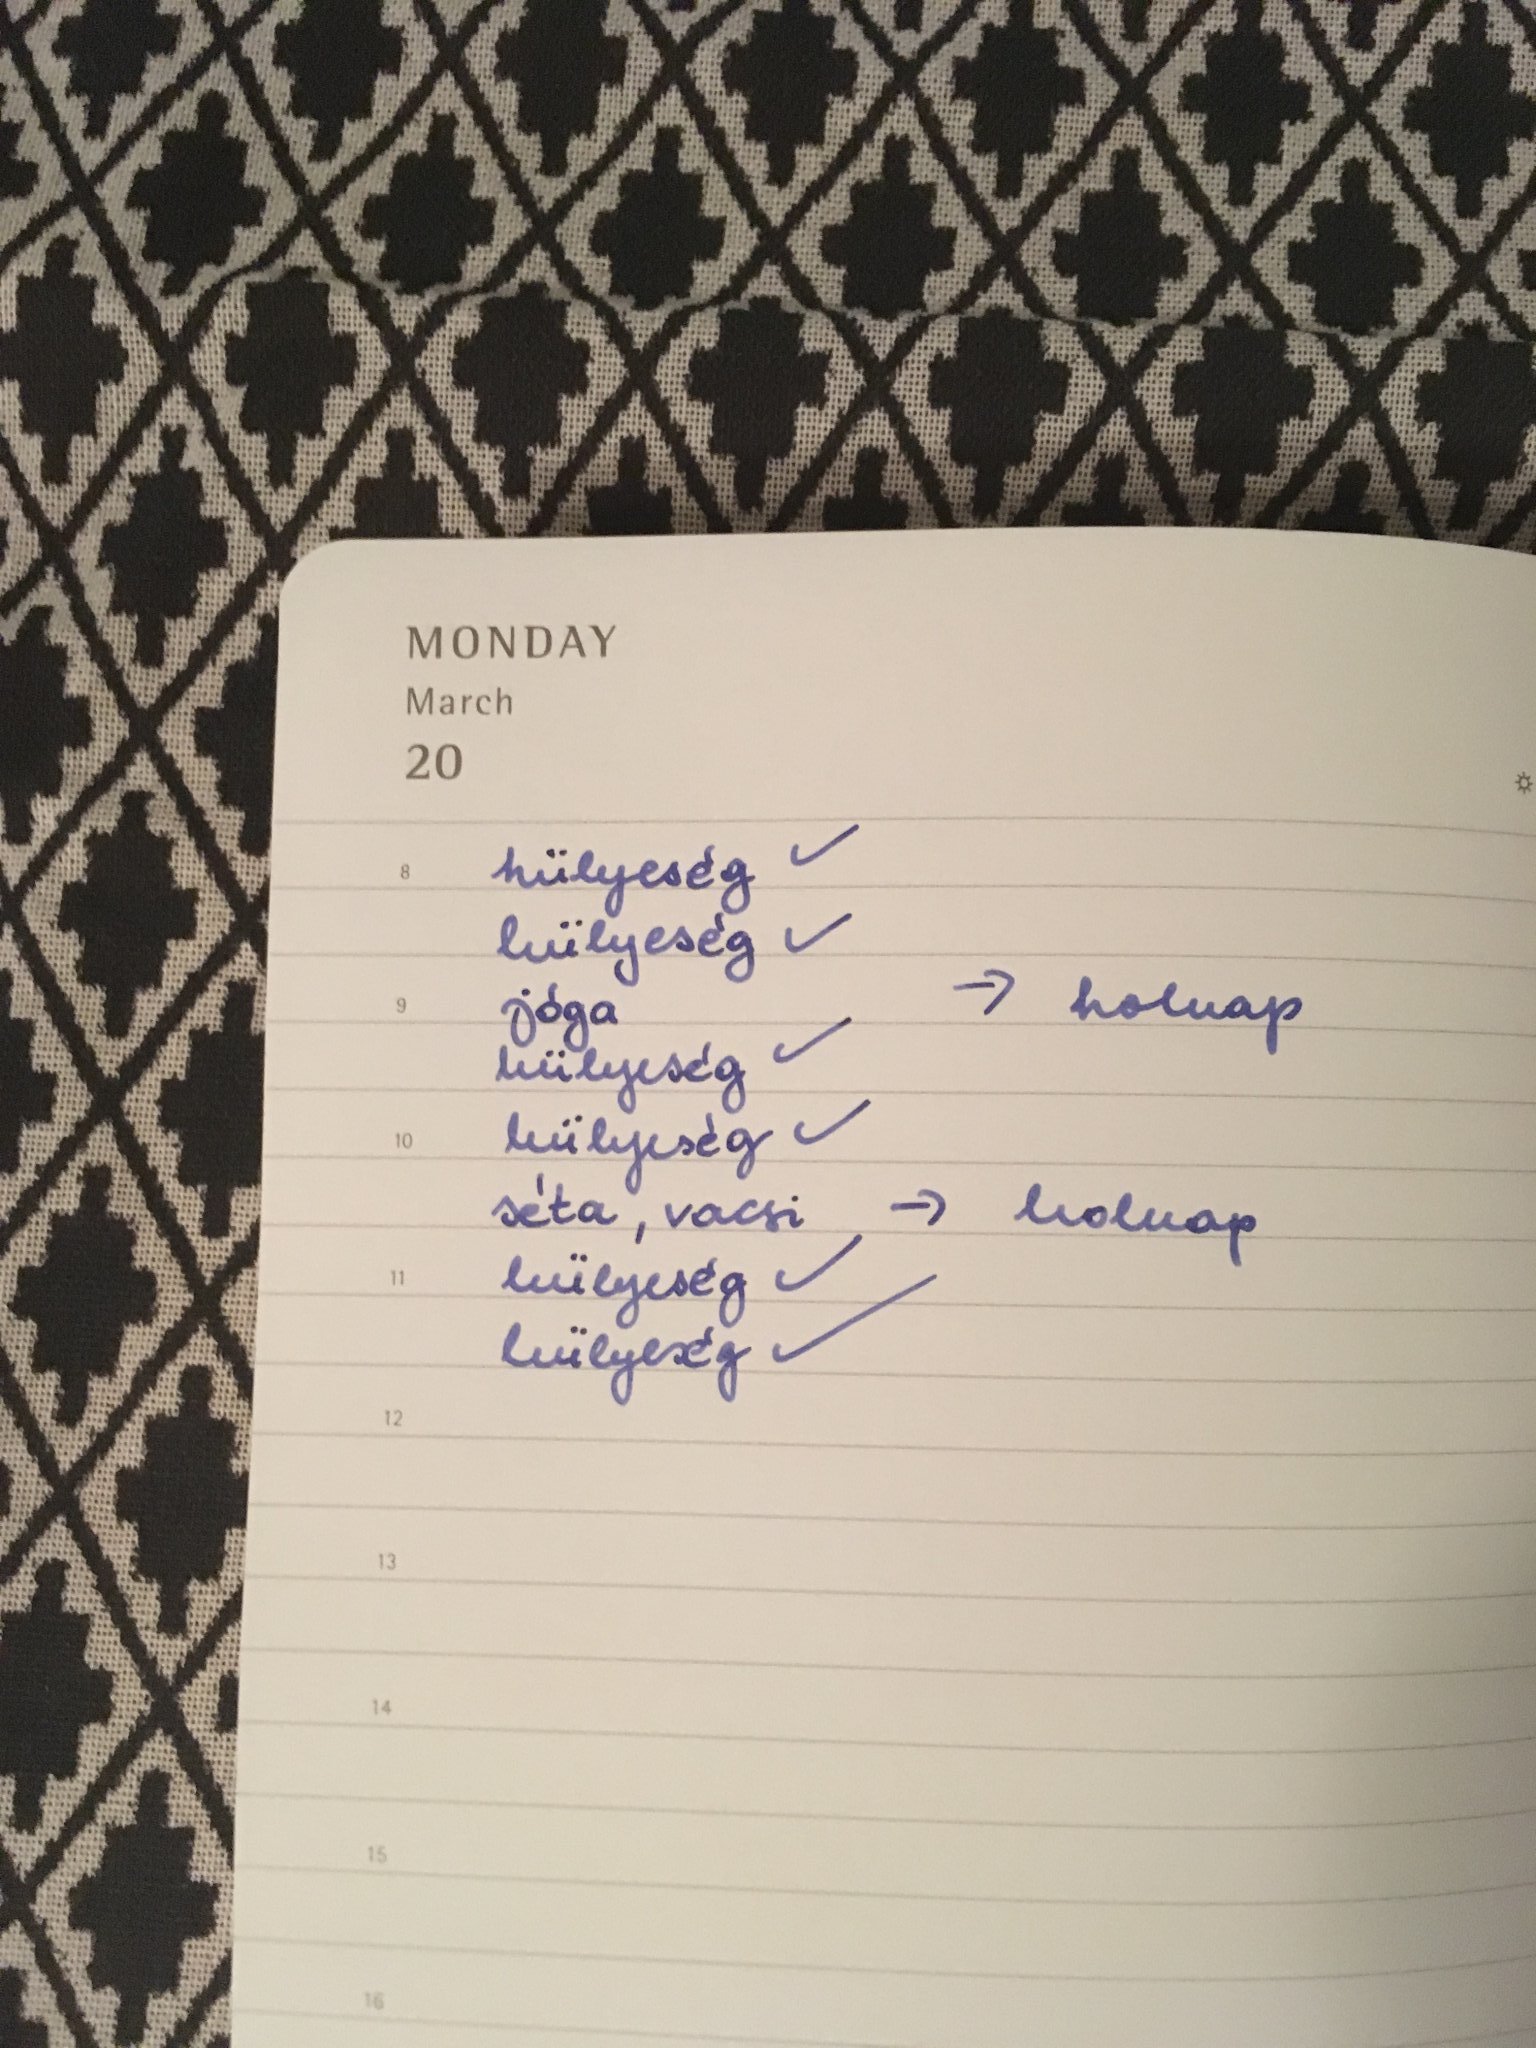 MONDAY
March
20
8 hülyeség ✓
hülyeség ✓
9 jóga → holnap
hülyeség ✓
10 hülyeség ✓
séta, vacsi → holnap
11 hülyeség ✓
hülyeség ✓
12
13
14
15
16